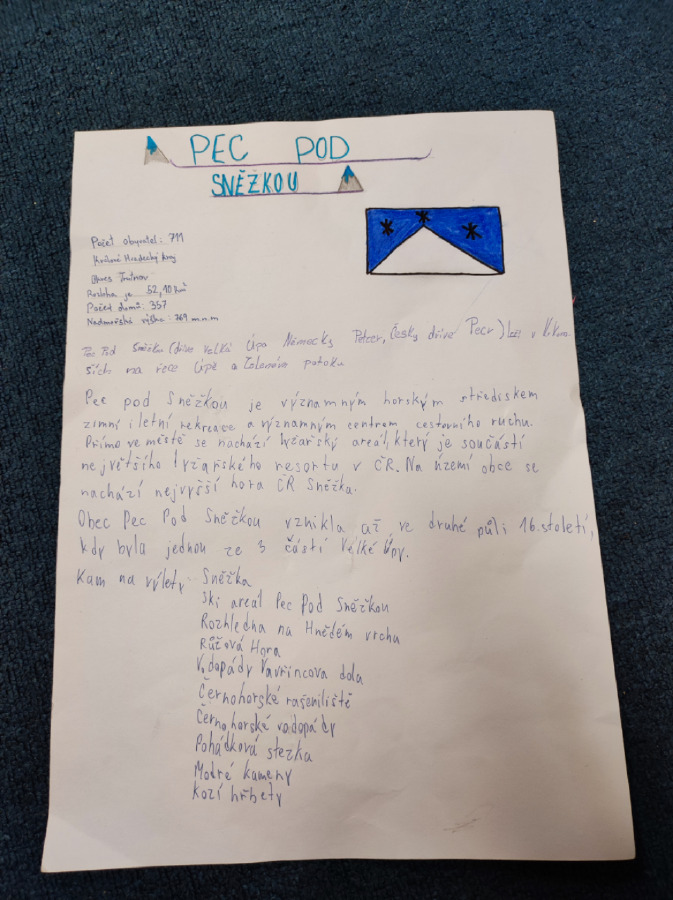 PEC POD
SNĚŽKOU
Počet obyvatel: 711
Králové Hradecký kraj
Okres Trutnov
Rozloha je 52,10 km²
Počed domů: 357
Nadmořská výška: 769 m.n.m
Pec Pod Sněžkou (dříve Velká Úpa Německy Petzer, Česky dříve Pecr) leží v Krkono
ších na řece Úpě a Zeleném potoku
Pec pod Sněžkou je významným horským střediskem
zimní i letní rekreace a významným centrem cestovního ruchu.
Přímo ve městě se nachází lyžařský areál, který je součástí
největšího lyžařského resortu v ČR. Na území obce se
nachází nejvyšší hora ČR Sněžka.
Obec Pec Pod Sněžkou vznikla až ve druhé půli 16. století,
kdy byla jednou ze 3 částí Velké Úpy.
Kam na výlety: Sněžka
Ski areál Pec Pod Sněžkou
Rozhledna na Hnědém vrchu
Růžová Hora
Vodopády Vavřincova dola
Černohorské rašeniliště
Černohorské vodopády
Pohádková stezka
Modré kameny
Kozí hřbety